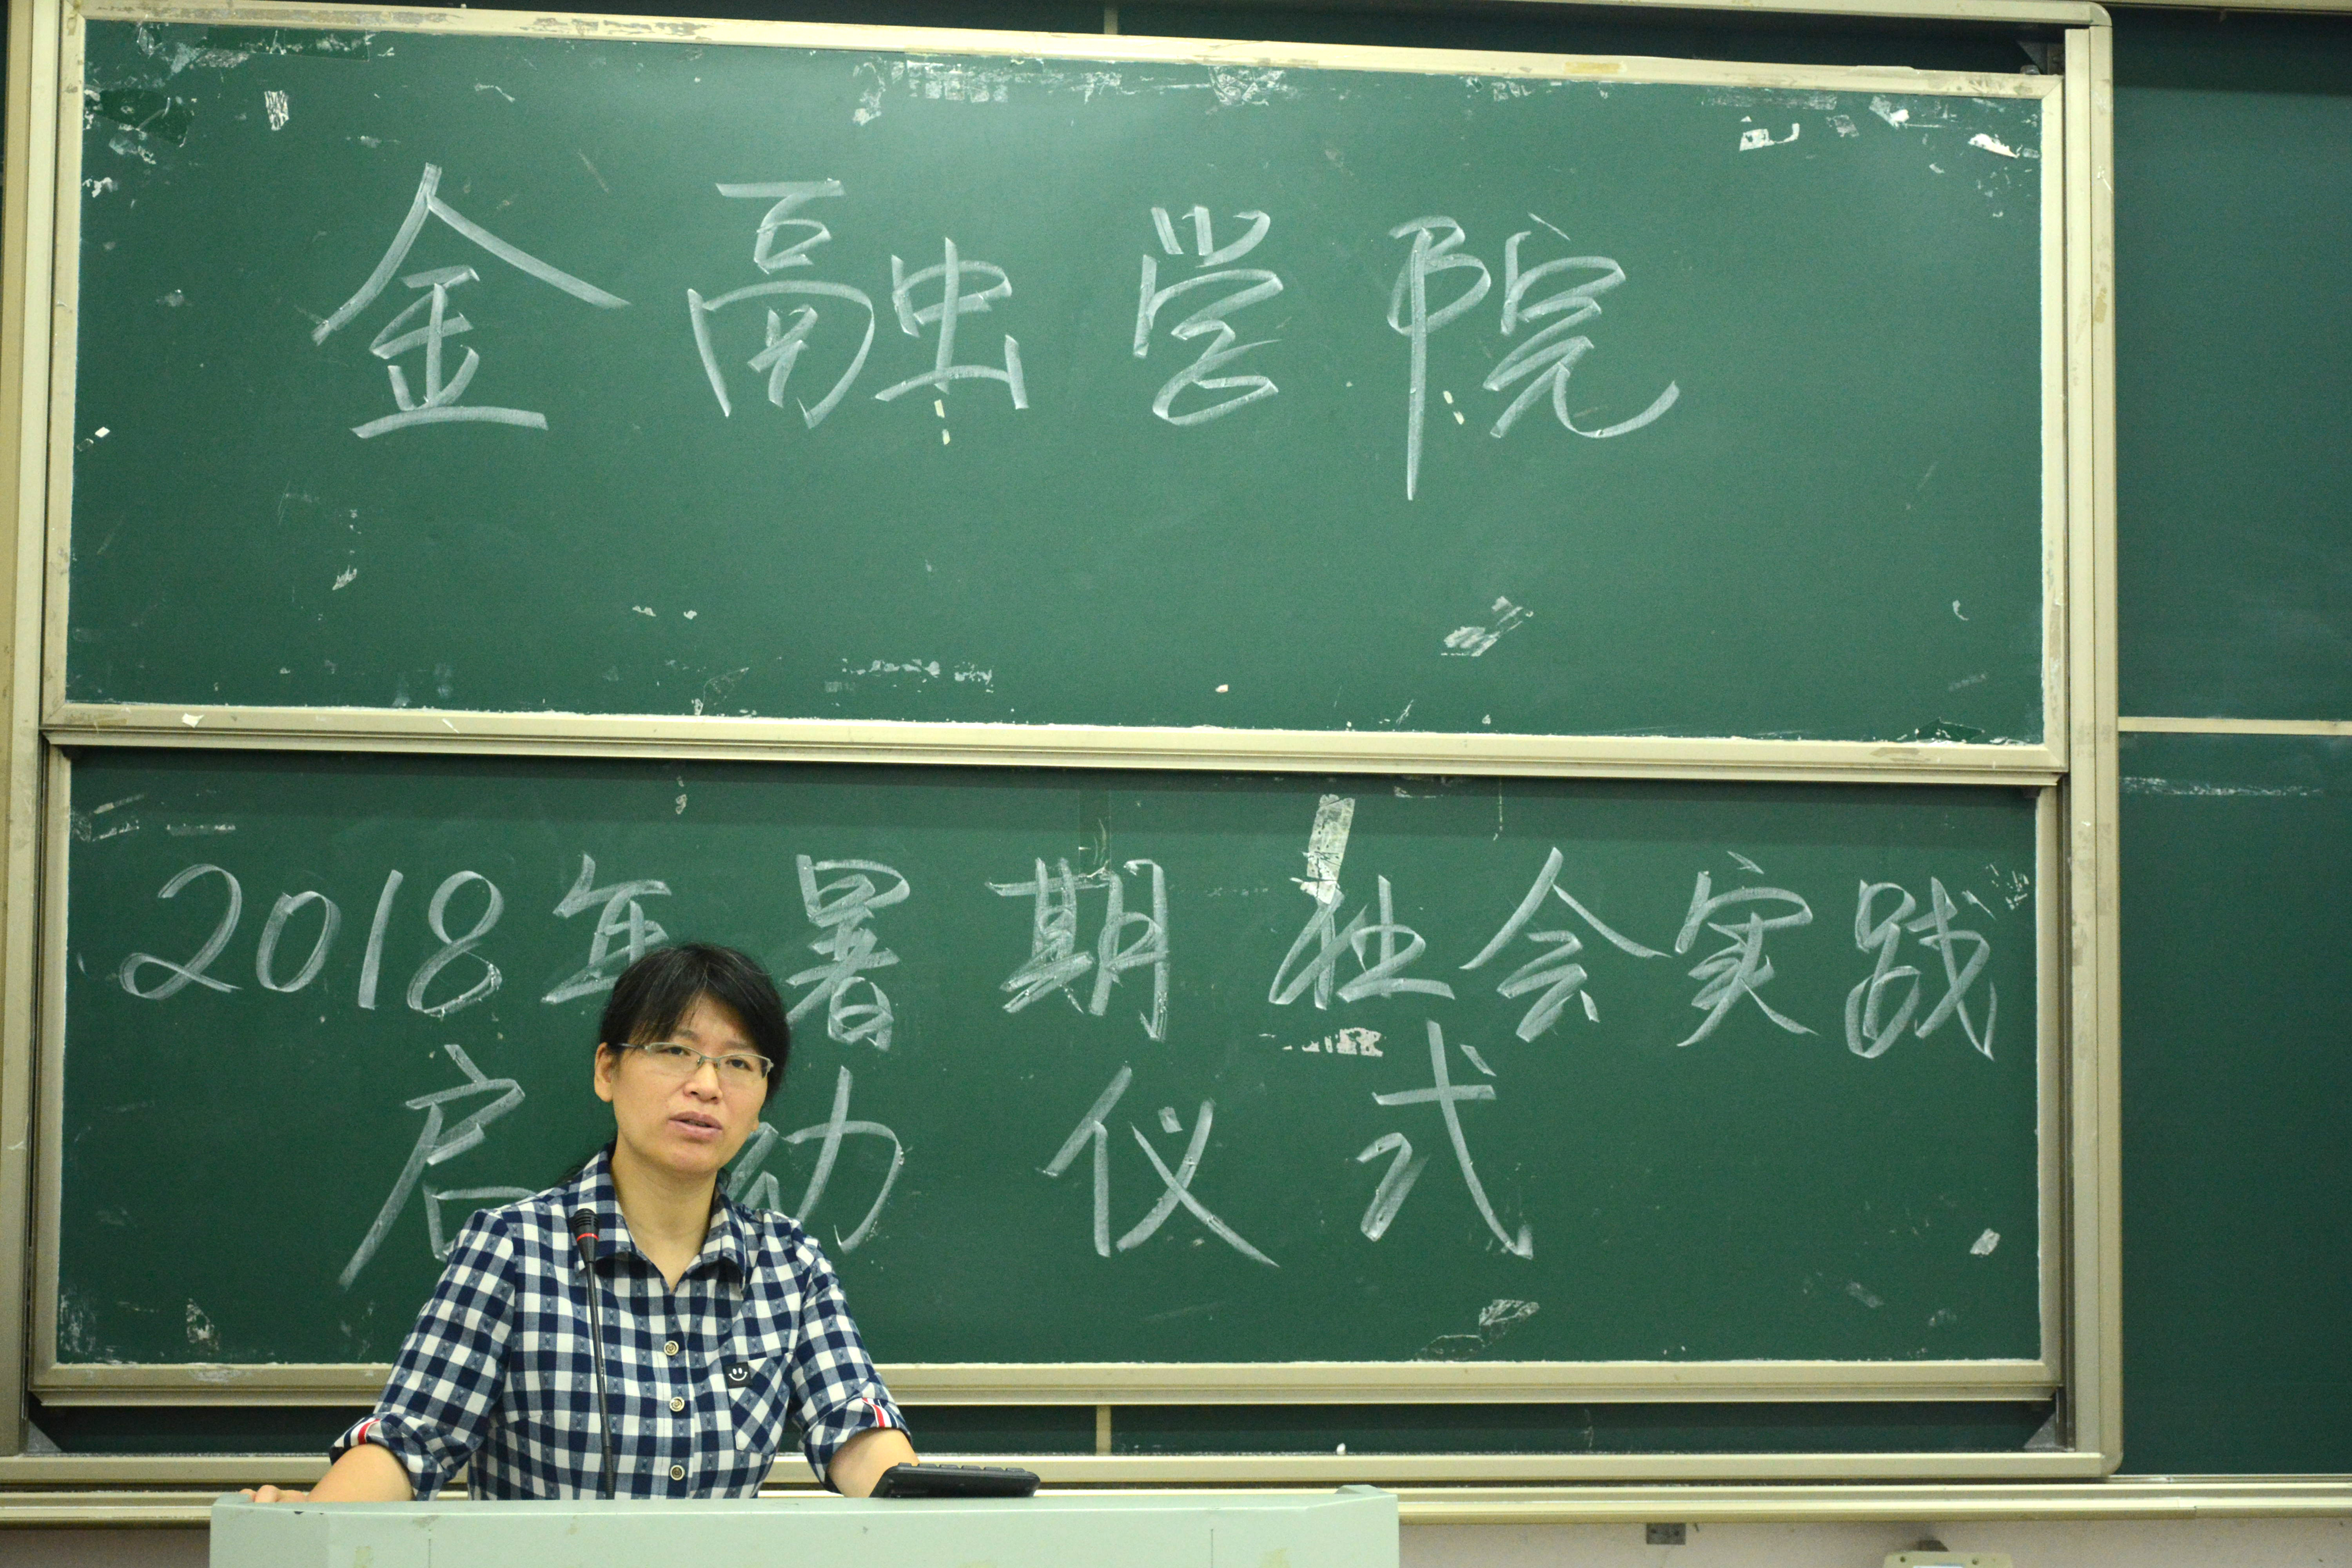 金融学院
2018年暑期社会实践
启动仪式